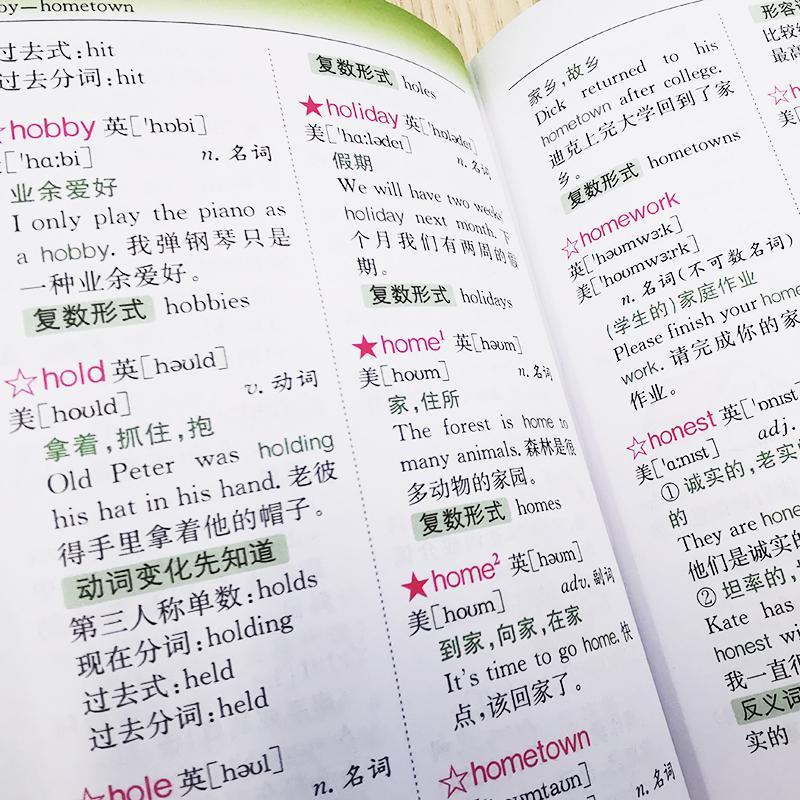 by—hometown
过去式:hit
过去分词:hit
☆hobby 英['hɒbi]
['hɑ:bi]
n. 名词
业余爱好
I only play the piano as
a hobby. 我弹钢琴只是
一种业余爱好。
复数形式 hobbies
☆hold 英[həʊld]
美[hoʊld]
v. 动词
拿着,抓住,抱
Old Peter was holding
his hat in his hand. 老彼
得手里拿着他的帽子。
动词变化先知道
第三人称单数:holds
现在分词:holding
过去式:held
过去分词:held
☆hole 英[həʊl]
n. 名词
复数形式 holes
★holiday 英['hɒlədeɪ]
美['hɑ:lədeɪ]
n. 名词
假期
We will have two weeks'
holiday next month. 下
个月我们有两周的假
期。
复数形式 holidays
★home¹ 英[həʊm]
美[hoʊm]
n. 名词
家,住所
The forest is home to
many animals. 森林是很
多动物的家园。
复数形式 homes
★home² 英[həʊm]
美[hoʊm]
adv. 副词
到家,向家,在家
It's time to go home. 快
点,该回家了。
☆hometown
n. 名词
家乡,故乡
Dick returned to his
hometown after college.
迪克上完大学回到了家
乡。
复数形式 hometowns
☆homework
英['həʊmwɜ:k]
美['hoʊmwɜ:rk]
n. 名词(不可数名词)
(学生的)家庭作业
Please finish your home
work. 请完成你的家
作业。
☆honest 英['ɒnɪst]
美['ɑ:nɪst]
adj.
① 诚实的,老实
的
They are hone
他们是诚实的
② 坦率的,
Kate has
honest wi
我一直很
反义词
实的
形容词
比较
最高